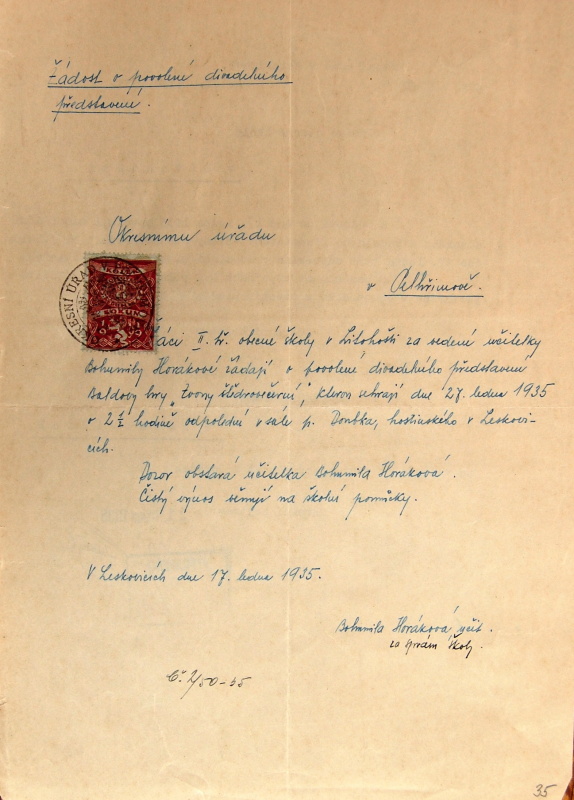 Žádost o povolení divadelního
představení.
Okresnímu úřadu
v Pelhřimově.
OKRESNÍ ÚŘAD
KOLEK
KORUN
Žáci II. tř. obecné školy v Litohošti za vedení učitelky
Bohumily Horákové žádají o povolení divadelního představení
Baldovy hry „Zvony štědrovečerní“, kterou sehrají dne 27. ledna 1935
o 2½ hodině odpolední v sále p. Doubka, hostinského v Leskovi-
cích.
Dozor obstará učitelka Bohumila Horáková.
Čistý výnos věnují na školní pomůcky.
V Leskovicích dne 17. ledna 1935.
Bohumila Horáková učit.
za správu školy.
35